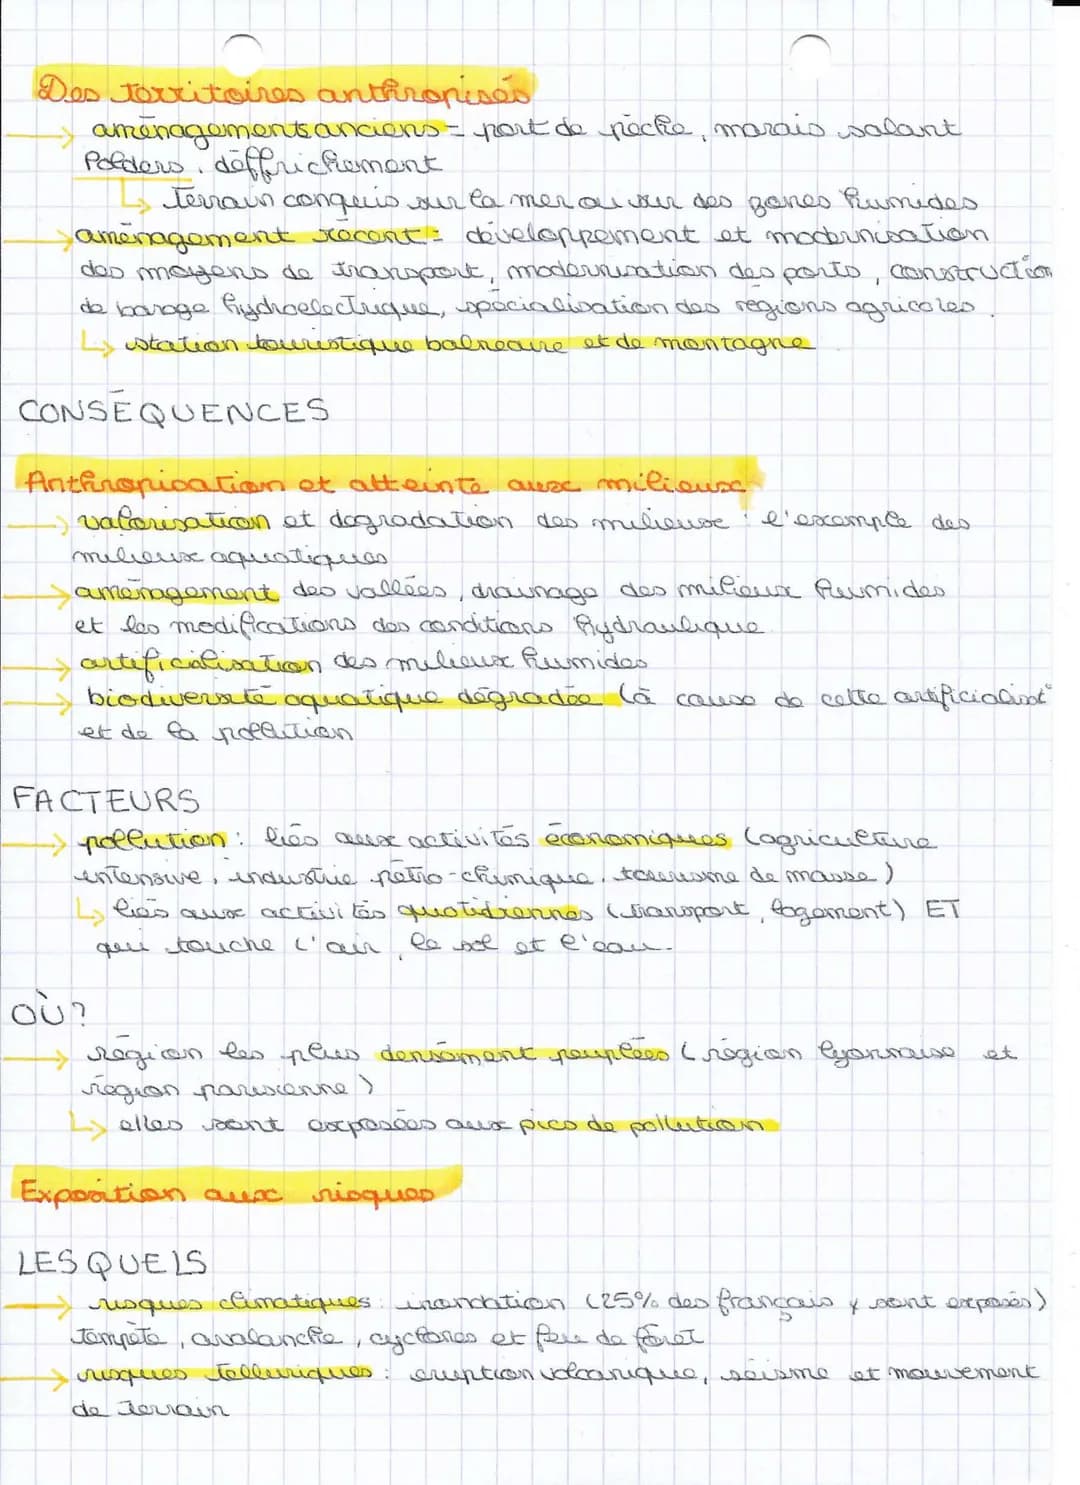 Des territoires anthropisés
→ aménagements anciens = port de pêche, marais salant
Polders, déffrichement
↳ Terrain conquis sur la mer ou sur des zones humides
→ aménagement récent : développement et modernisation
des moyens de transport, modernisation des ports, construction
de barage hydroelectrique, spécialisation des régions agricoles.
↳ station touristique balneaire et de montagne
CONSÉQUENCES
Anthropisation et atteinte aux milieux
→ valorisation et dégradation des milieux : l'exemple des
milieux aquatiques
→ aménagement des vallées, drainage des milieux humides
et les modifications des conditions hydraulique
→ artificialisation des milieux humides
→ biodiversité aquatique dégradée (à cause de cette artificialisat°
et de la pollution
FACTEURS
→ pollution : liés aux activités économiques (agriculture
intensive, industrie pétro-chimique, tourisme de masse)
↳ liés aux activités quotidiennes (transport, logement) ET
qui touche l'air, le sol et l'eau.
OÙ ?
→ région les plus densément peuplées (région lyonnaise et
région parisienne)
↳ elles sont exposées aux pics de pollution
Exposition aux risques
LESQUELS
→ risques climatiques : inondation (25% des français y sont exposés)
Tempête, avalanche, cyclones et feu de fôret
→ risques Telluriques : eruption volcanique, séisme et mouvement
de Terrain